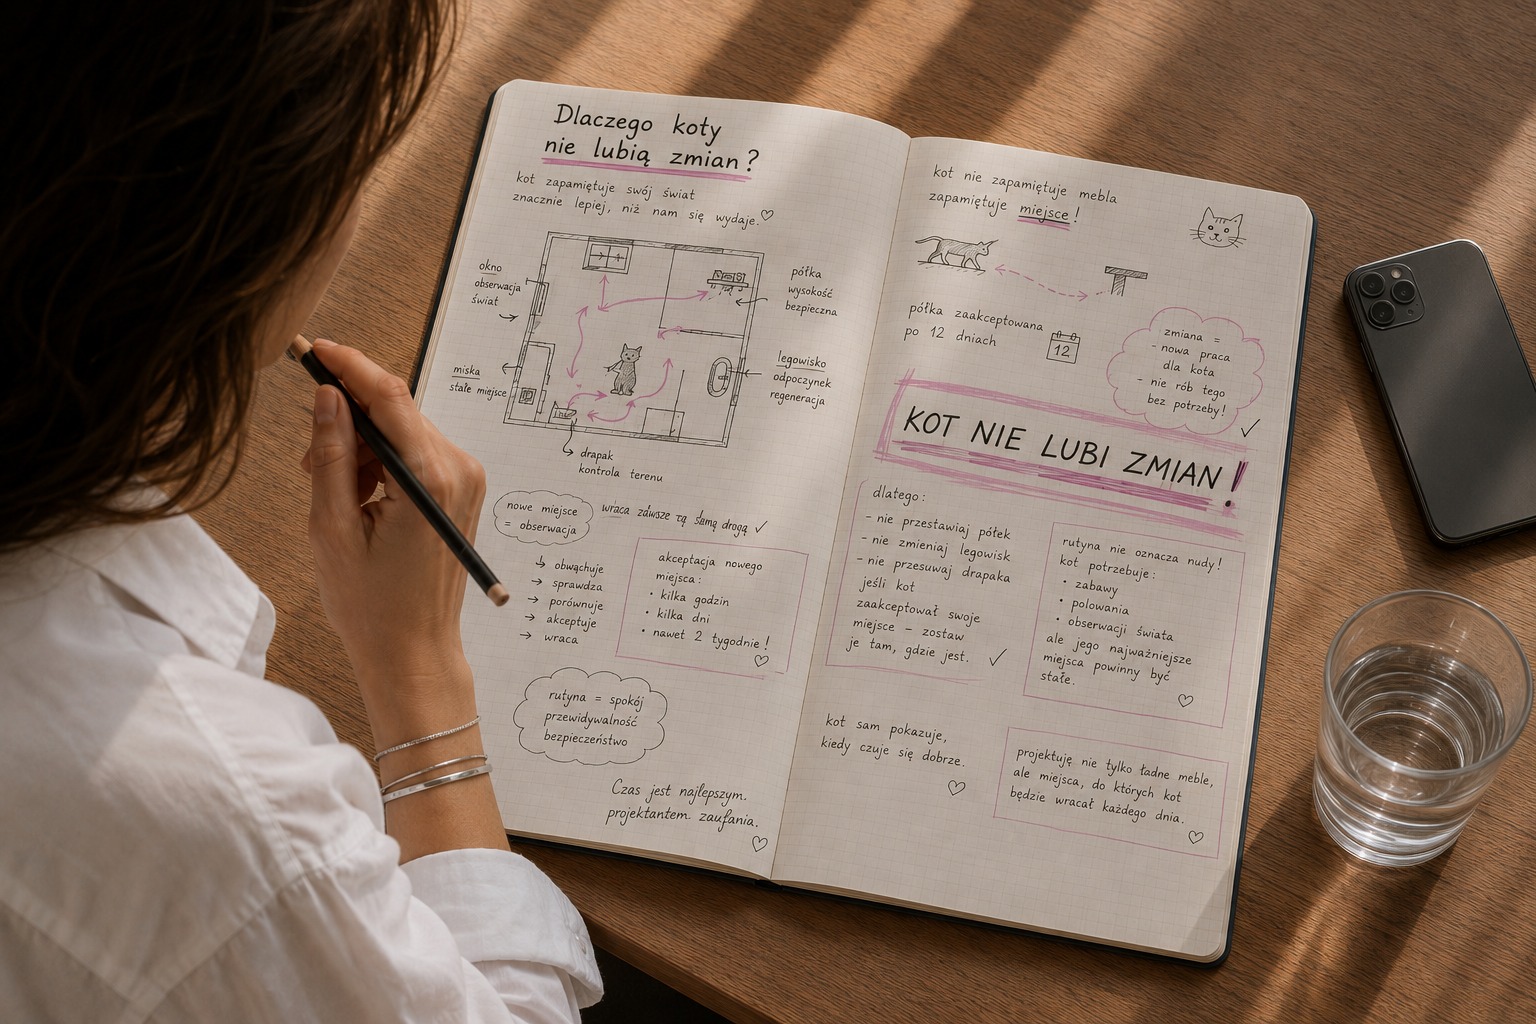 Dlaczego koty
nie lubią zmian?
kot zapamiętuje swój świat
znacznie lepiej, niż nam się wydaje.
okno
obserwacja
świat
miska
stałe miejsce
półka
wysokość
bezpieczna
legowisko
odpoczynek
regeneracja
drapak
kontrola terenu
nowe miejsce
= obserwacja
wraca zawsze tą samą drogą
obwąchuje
sprawdza
porównuje
akceptuje
wraca
akceptacja nowego
miejsca:
• kilka godzin
• kilka dni
• nawet 2 tygodnie!
rutyna = spokój
przewidywalność
bezpieczeństwo
Czas jest najlepszym.
projektantem zaufania.
kot nie zapamiętuje mebla
zapamiętuje miejsce!
półka zaakceptowana
po 12 dniach
12
zmiana =
- nowa praca
dla kota
- nie rób tego
bez potrzeby!
KOT NIE LUBI ZMIAN!
dlatego:
- nie przestawiaj półek
- nie zmieniaj legowisk
- nie przesuwaj drapaka
jeśli kot
zaakceptował swoje
miejsce – zostaw
je tam, gdzie jest.
rutyna nie oznacza nudy!
kot potrzebuje:
• zabawy
• polowania
• obserwacji świata
ale jego najważniejsze
miejsca powinny być
stałe.
kot sam pokazuje,
kiedy czuje się dobrze.
projektuję nie tylko ładne meble,
ale miejsca, do których kot
będzie wracał każdego dnia.